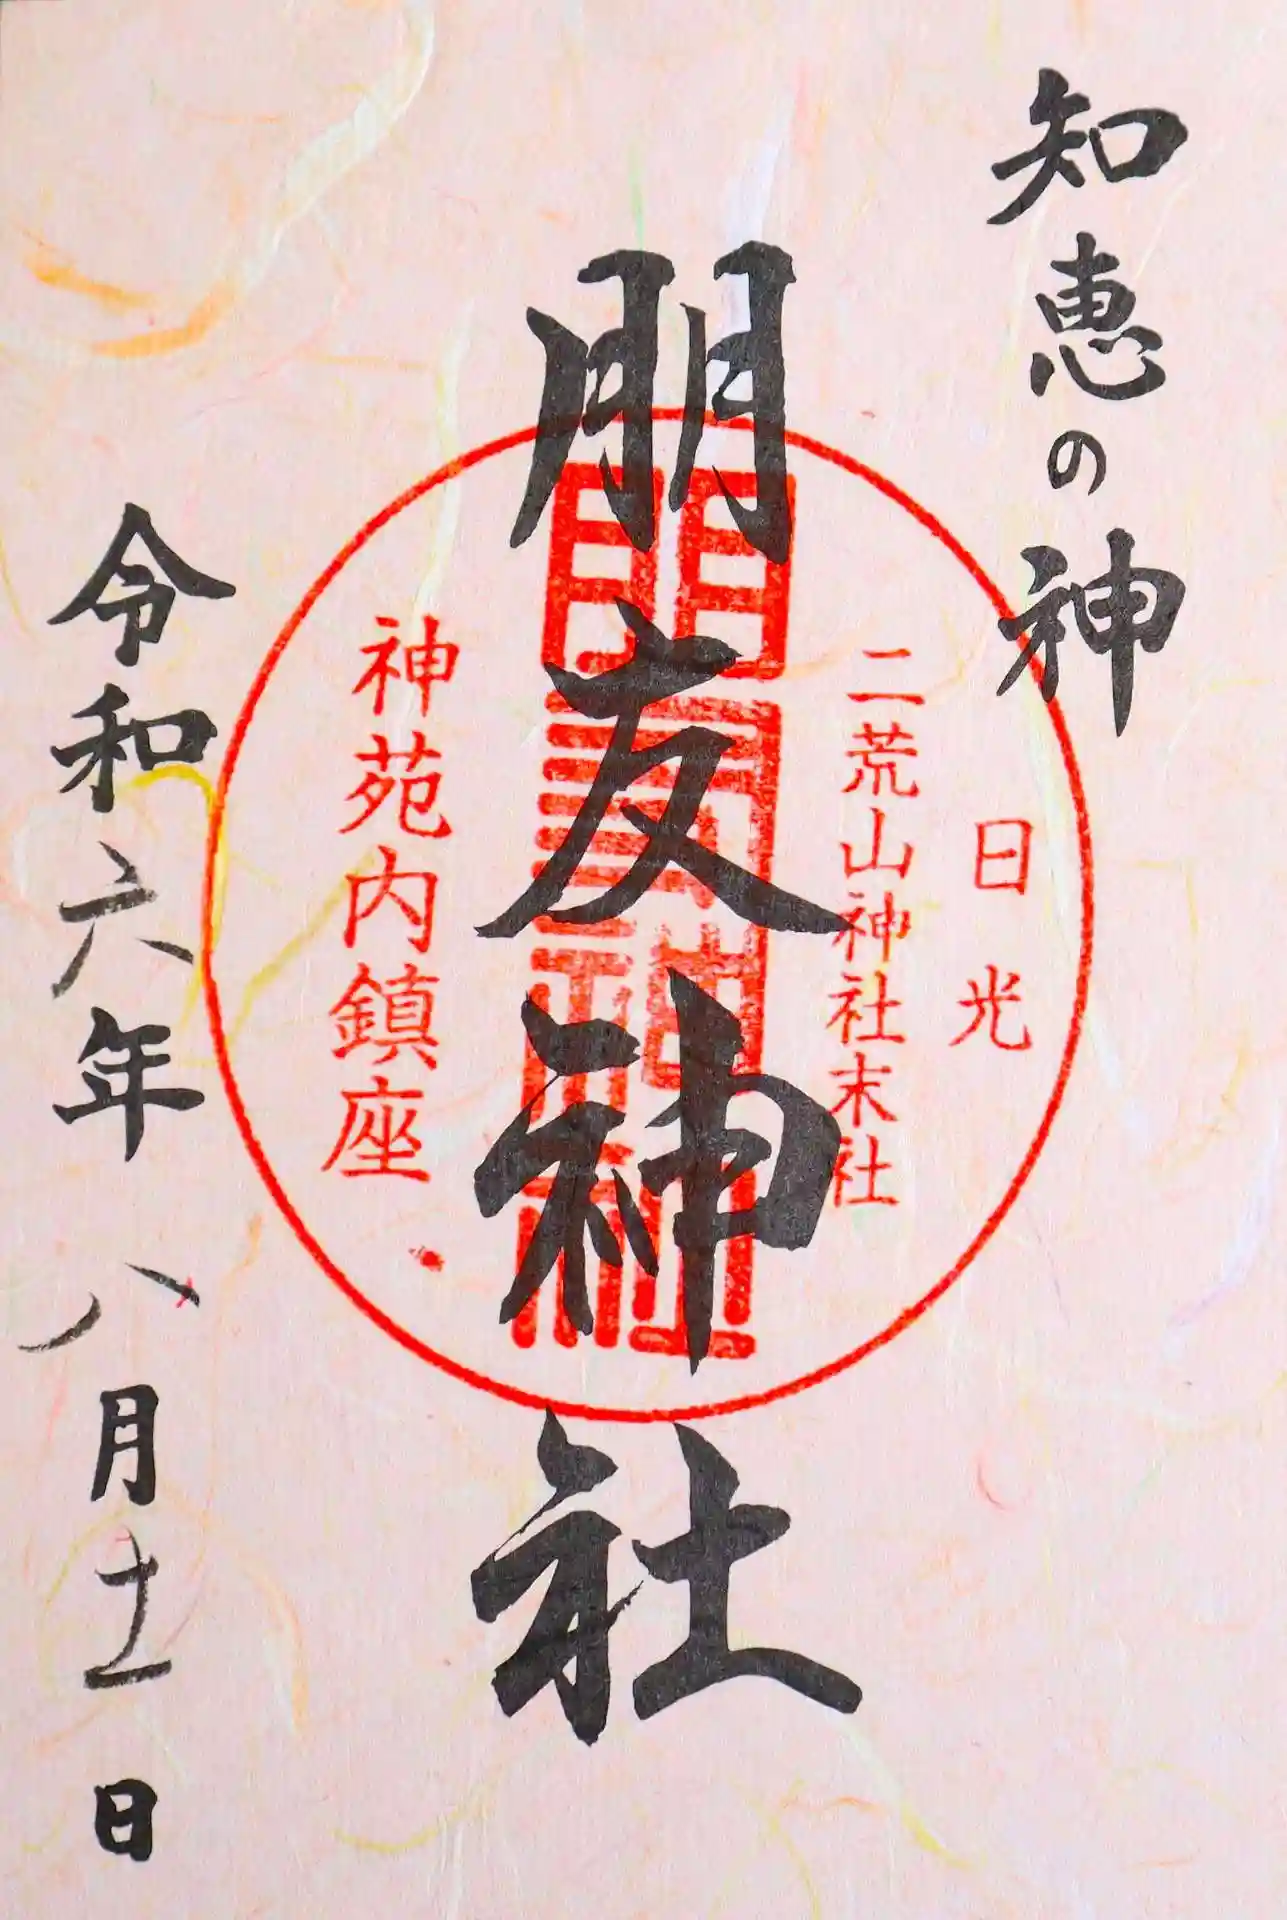 知恵の神
日光
二荒山神社末社
朋友神社
朋友神社
神苑内鎮座
令和六年八月十一日